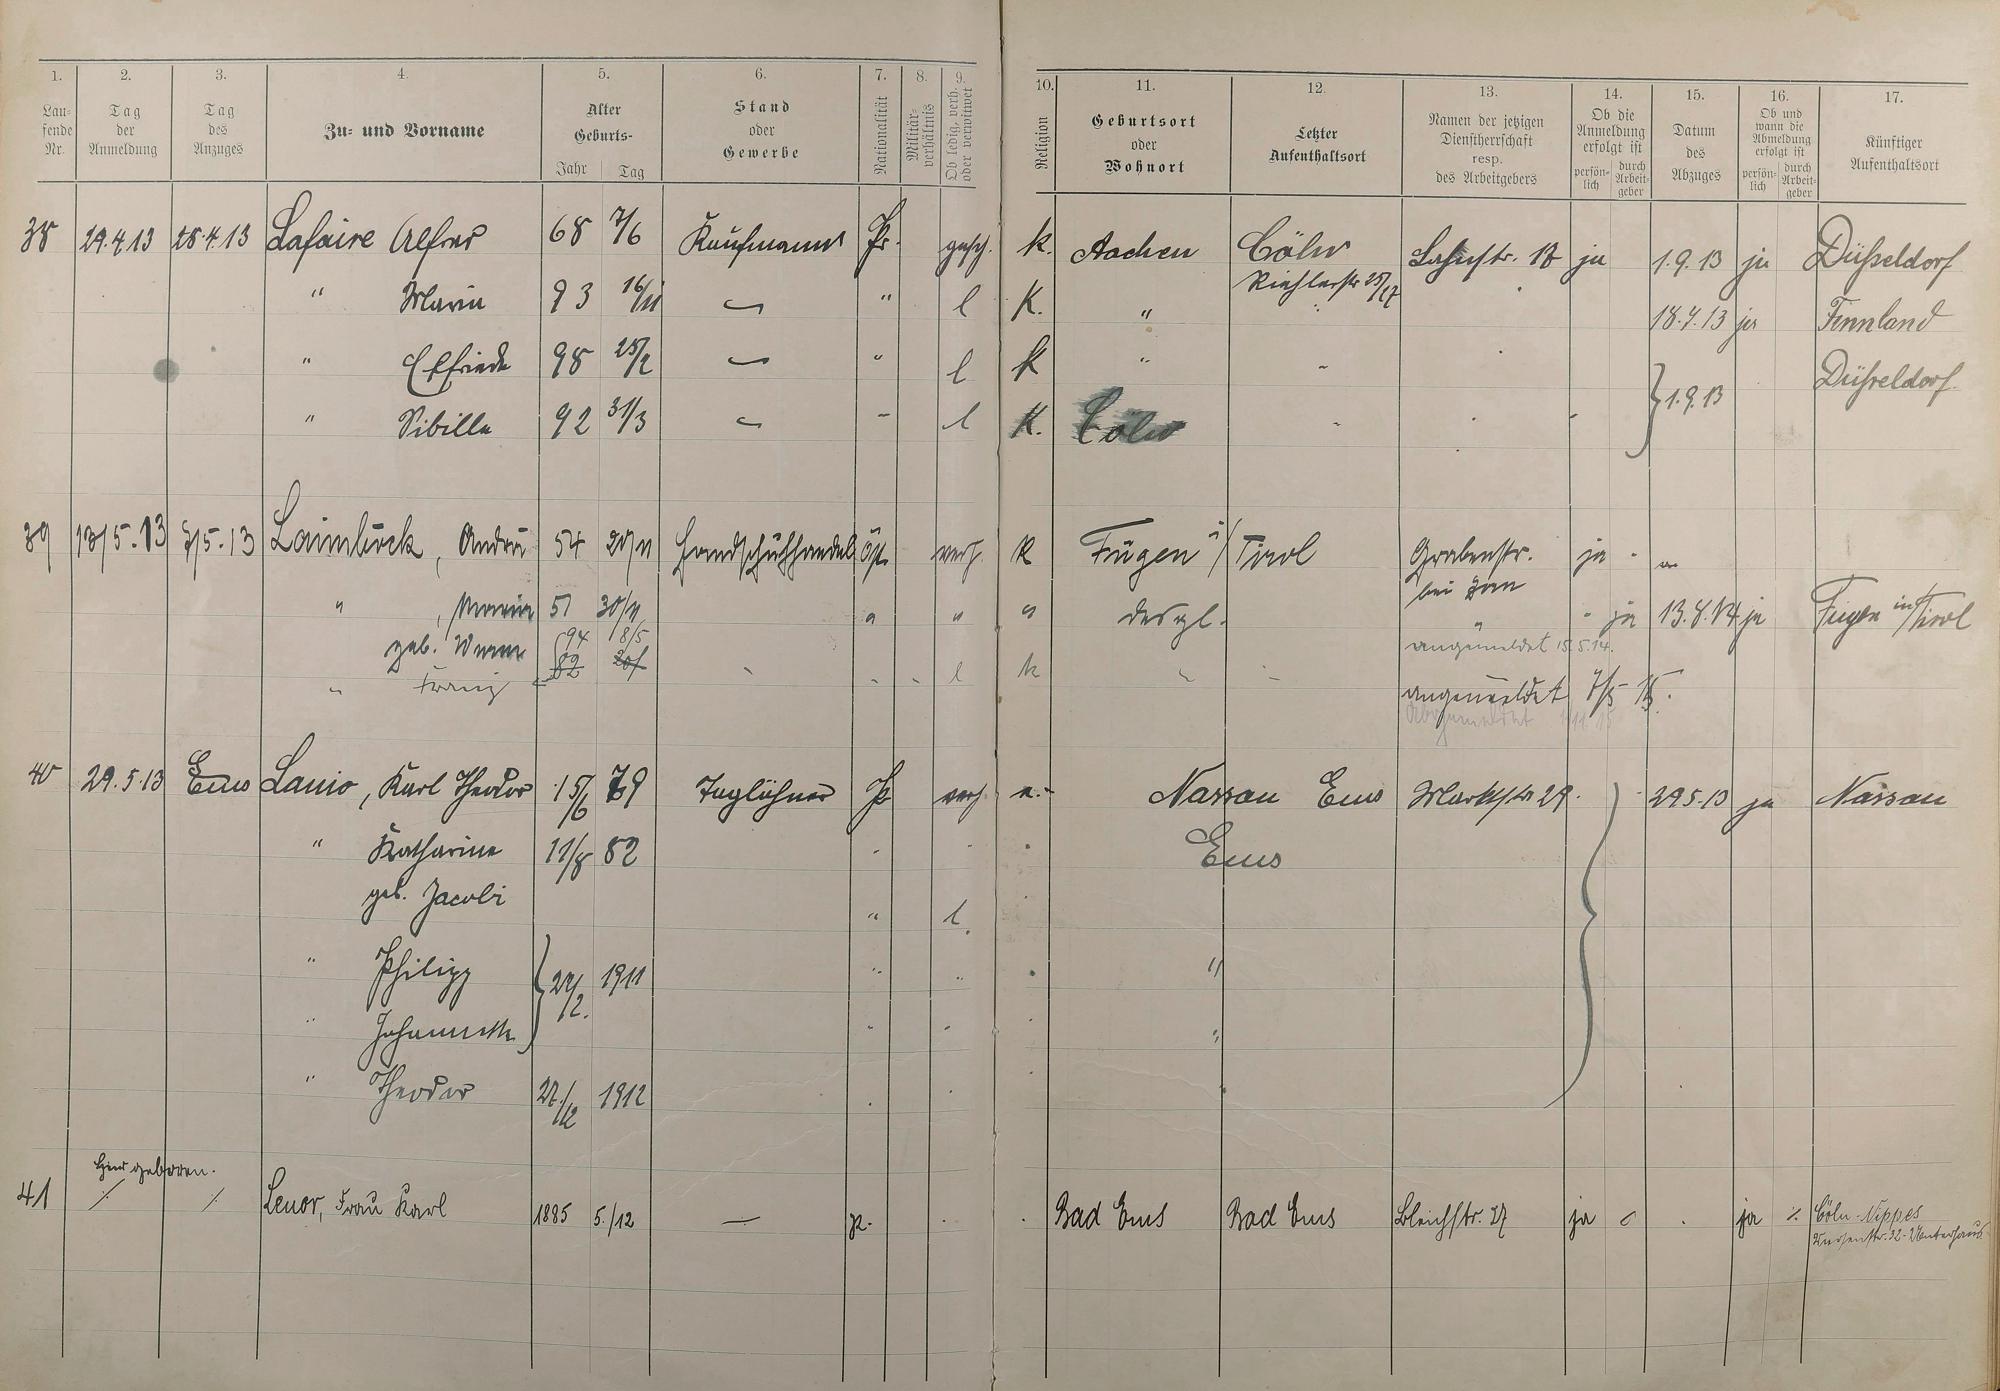 1. 2. 3. 4. 5. 6. 7. 8. 9. 10. 11. 12. 13. 14. 15. 16. 17.
Lau-
fende
Nr.
Tag
der
Anmeldung
Tag
des
Anzuges
Zu- und Vorname
Alter
Geburts-
Jahr Tag
Stand
oder
Gewerbe
Nationalität
Militär-
verhältnis
Ob ledig, verh.
oder verwitwet
Religion
Geburtsort
oder
Wohnort
Letzter
Aufenthaltsort
Namen der jetzigen
Dienstherrschaft
resp.
des Arbeitgebers
Ob die
Anmeldung
erfolgt ist
persön-
lich
durch
Arbeit-
geber
Datum
des
Abzuges
Ob und
wann die
Abmeldung
erfolgt ist
persön-
lich
durch
Arbeit-
geber
Künftiger
Aufenthaltsort
38 29.4.13 28.4.13 Lafaire Alfred 68 7/6 Kaufmann Pr. gesch. k. Aachen Cöln Lahnstr. 18 ja 1.9.13 ja Düsseldorf
Riehlerstr 25/27
" Maria 93 16/11 " l K. " 18.7.13 ja Finnland
" Elfriede 98 25/2 " l k " Düsseldorf
" Sibilla 92 31/3 l K. Cöln } 1.9.13
39 13/5.13 5.13 Laimböck, Andrä 54 20/11 Handschuhhandel Öst. verh. k Fügen i/Tirol Grabenstr. ja
bei
" , Maria 51 30/11 " " " desgl. ja 13.8.14 ja Fügen in Tirol
geb. 94 8/5 angemeldet 15.5.14.
82
" Franz l k angemeldet 7/5 15.
Abgemeldet
40 29.5.13 Ems Lanio, Karl Theodor 15/6 79 Taglöhner Pr verh. e. Nassau Ems Marktstr 29. 29.5.13 ja Nassau
" Katharine 11/8 82 Ems
geb. Jacobi
" l.
" Philipp } 22/2. 1911 "
" Johannette "
" Theodor 27./12 1912
Hier geboren.
41 ⁒ ⁒ Lenor, Frau Karl 1885 5./12 — pr. Bad Ems Bad Ems Bleichstr. 27 ja ja ⁒ Cöln-Nippes
32-Unterhaus